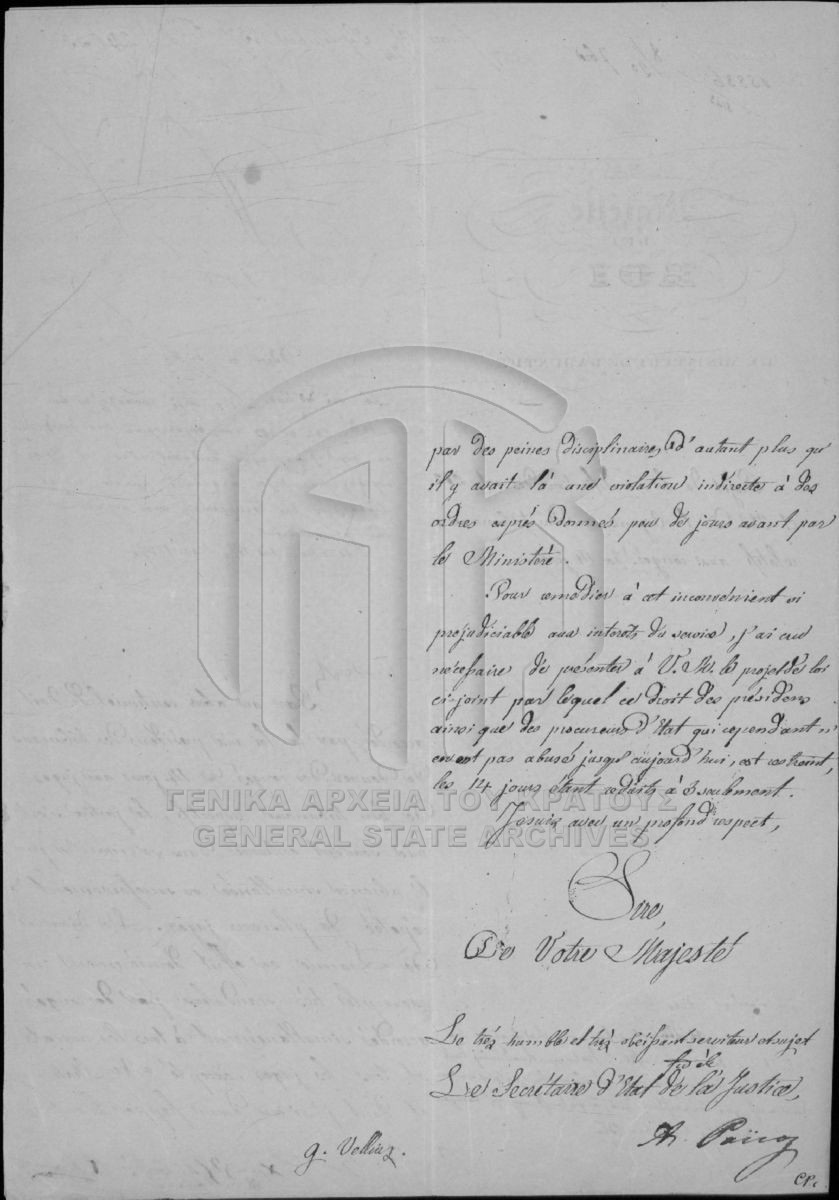 par des peines disciplinaires, d'autant plus qu'
il y avait là une violation indirecte à des
ordres exprès donnés peu de jours avant par
le Ministère.
Pour remédier à cet inconvénient si
préjudiciable aux interets du service, j'ai cru
nécessaire de présenter à V. M. le projet de loi
ci-joint par lequel ce droit des présidens
ainsi que des procureurs d'Etat qui cependant n'
en ont pas abusé jusqu'aujourd'hui, est restreint,
les 14 jours étant réduits à 3 seulement.
Je suis avec un profond respect,
Sire,
De Votre Majesté
Le très humble et très obéissant serviteur et sujet
fidèle
Le Secrétaire d'Etat de la Justice,
g. Vellios.
ΓΕΝΙΚΑ ΑΡΧΕΙΑ ΤΟΥ ΚΡΑΤΟΥΣ
GENERAL STATE ARCHIVES